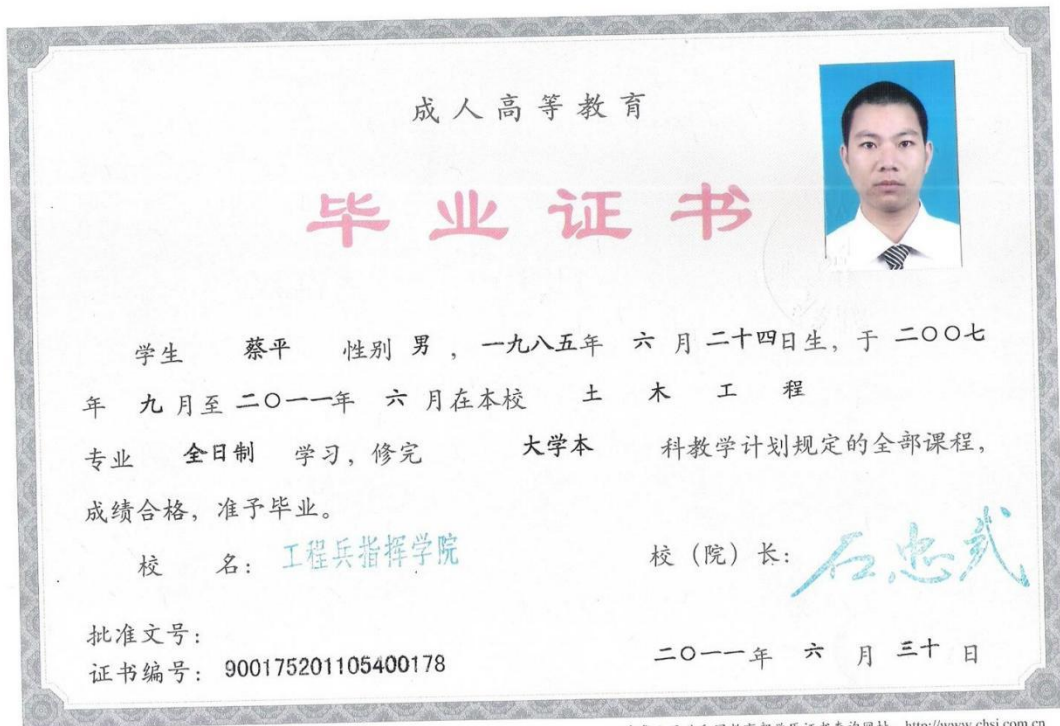 成人高等教育
毕业证书
学生 蔡平 性别 男 ，一九八五年 六 月 二十四日生，于 二〇〇七
年 九 月至 二〇一一年 六 月在本校 土 木 工 程
专业 全日制 学习，修完 大学本 科教学计划规定的全部课程，
成绩合格，准予毕业。
校 名： 工程兵指挥学院 校（院）长： 石忠武
批准文号：
证书编号： 900175201105400178 二〇一一年 六 月 三十 日
学历证书查询网站：http://www.chsi.com.cn